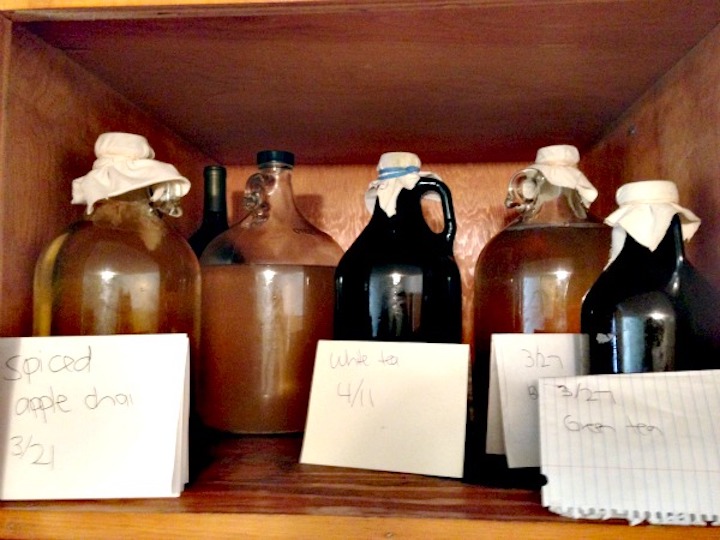 Spiced
apple chai
3/21
White tea
4/11
3/27
3/27
Green tea